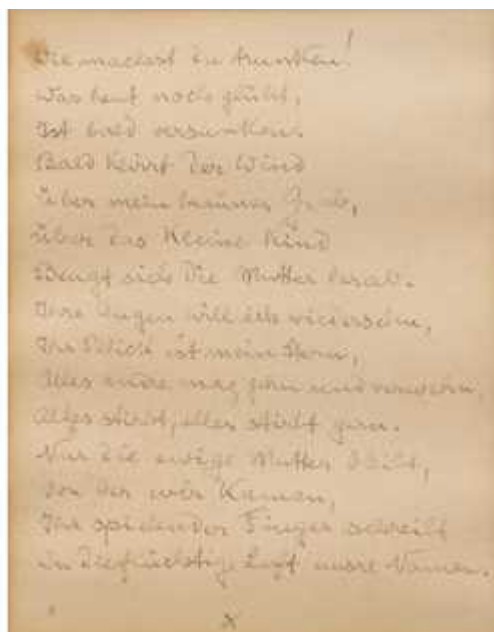 Wie machst du trunken!
Was heut noch glüht,
Ist bald versunken.
Bald klirrt der Wind
Über mein braunes Grab,
Über das kleine Kind
Beugt sich die Mutter herab.
Ihre Augen will ich wiedersehn,
Ihr Blick ist mein Stern,
Alles andre mag gehn und verwehn,
Alles stirbt, alles stirbt gern.
Nur die ewige Mutter bleibt,
Von der wir kamen,
Ihr spielender Finger schreibt
in die flüchtige Luft unsre Namen.
x